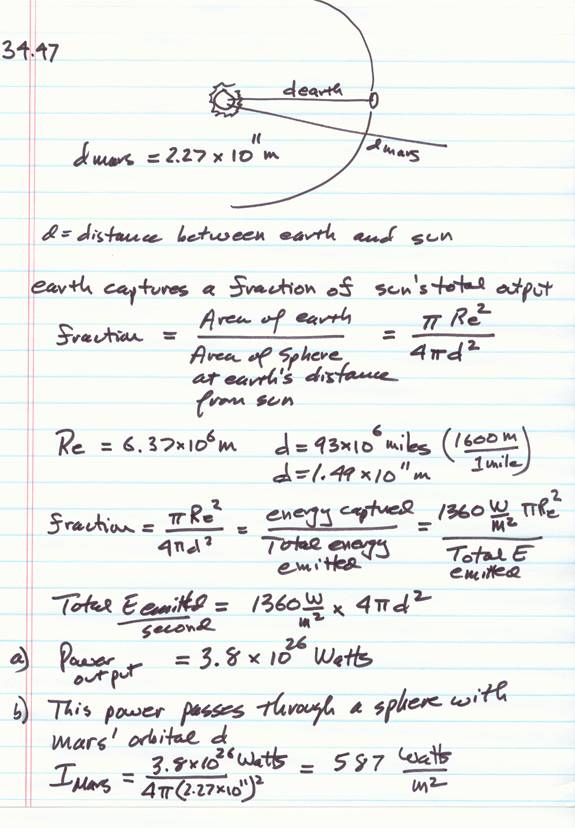 34.47
dearth
dmars = 2.27 x 10^11 m
dmars
d = distance between earth and sun
earth captures a fraction of sun's total output
fraction = Area of earth / Area of Sphere at earth's distance from sun = π Re² / 4πd²
Re = 6.37x10⁶ m d = 93x10⁶ miles (1600 m / 1 mile)
d = 1.49 x 10^11 m
fraction = πRe² / 4πd² = energy captured / Total energy emitted = 1360 W/m² πRe² / Total E emitted
Total E emitted / second = 1360 W/m² x 4πd²
a) Power output = 3.8 x 10^26 Watts
b) This power passes through a sphere with
mars' orbital d
I Mars = 3.8x10^26 Watts / 4π(2.27x10^11)² = 587 Watts / m²